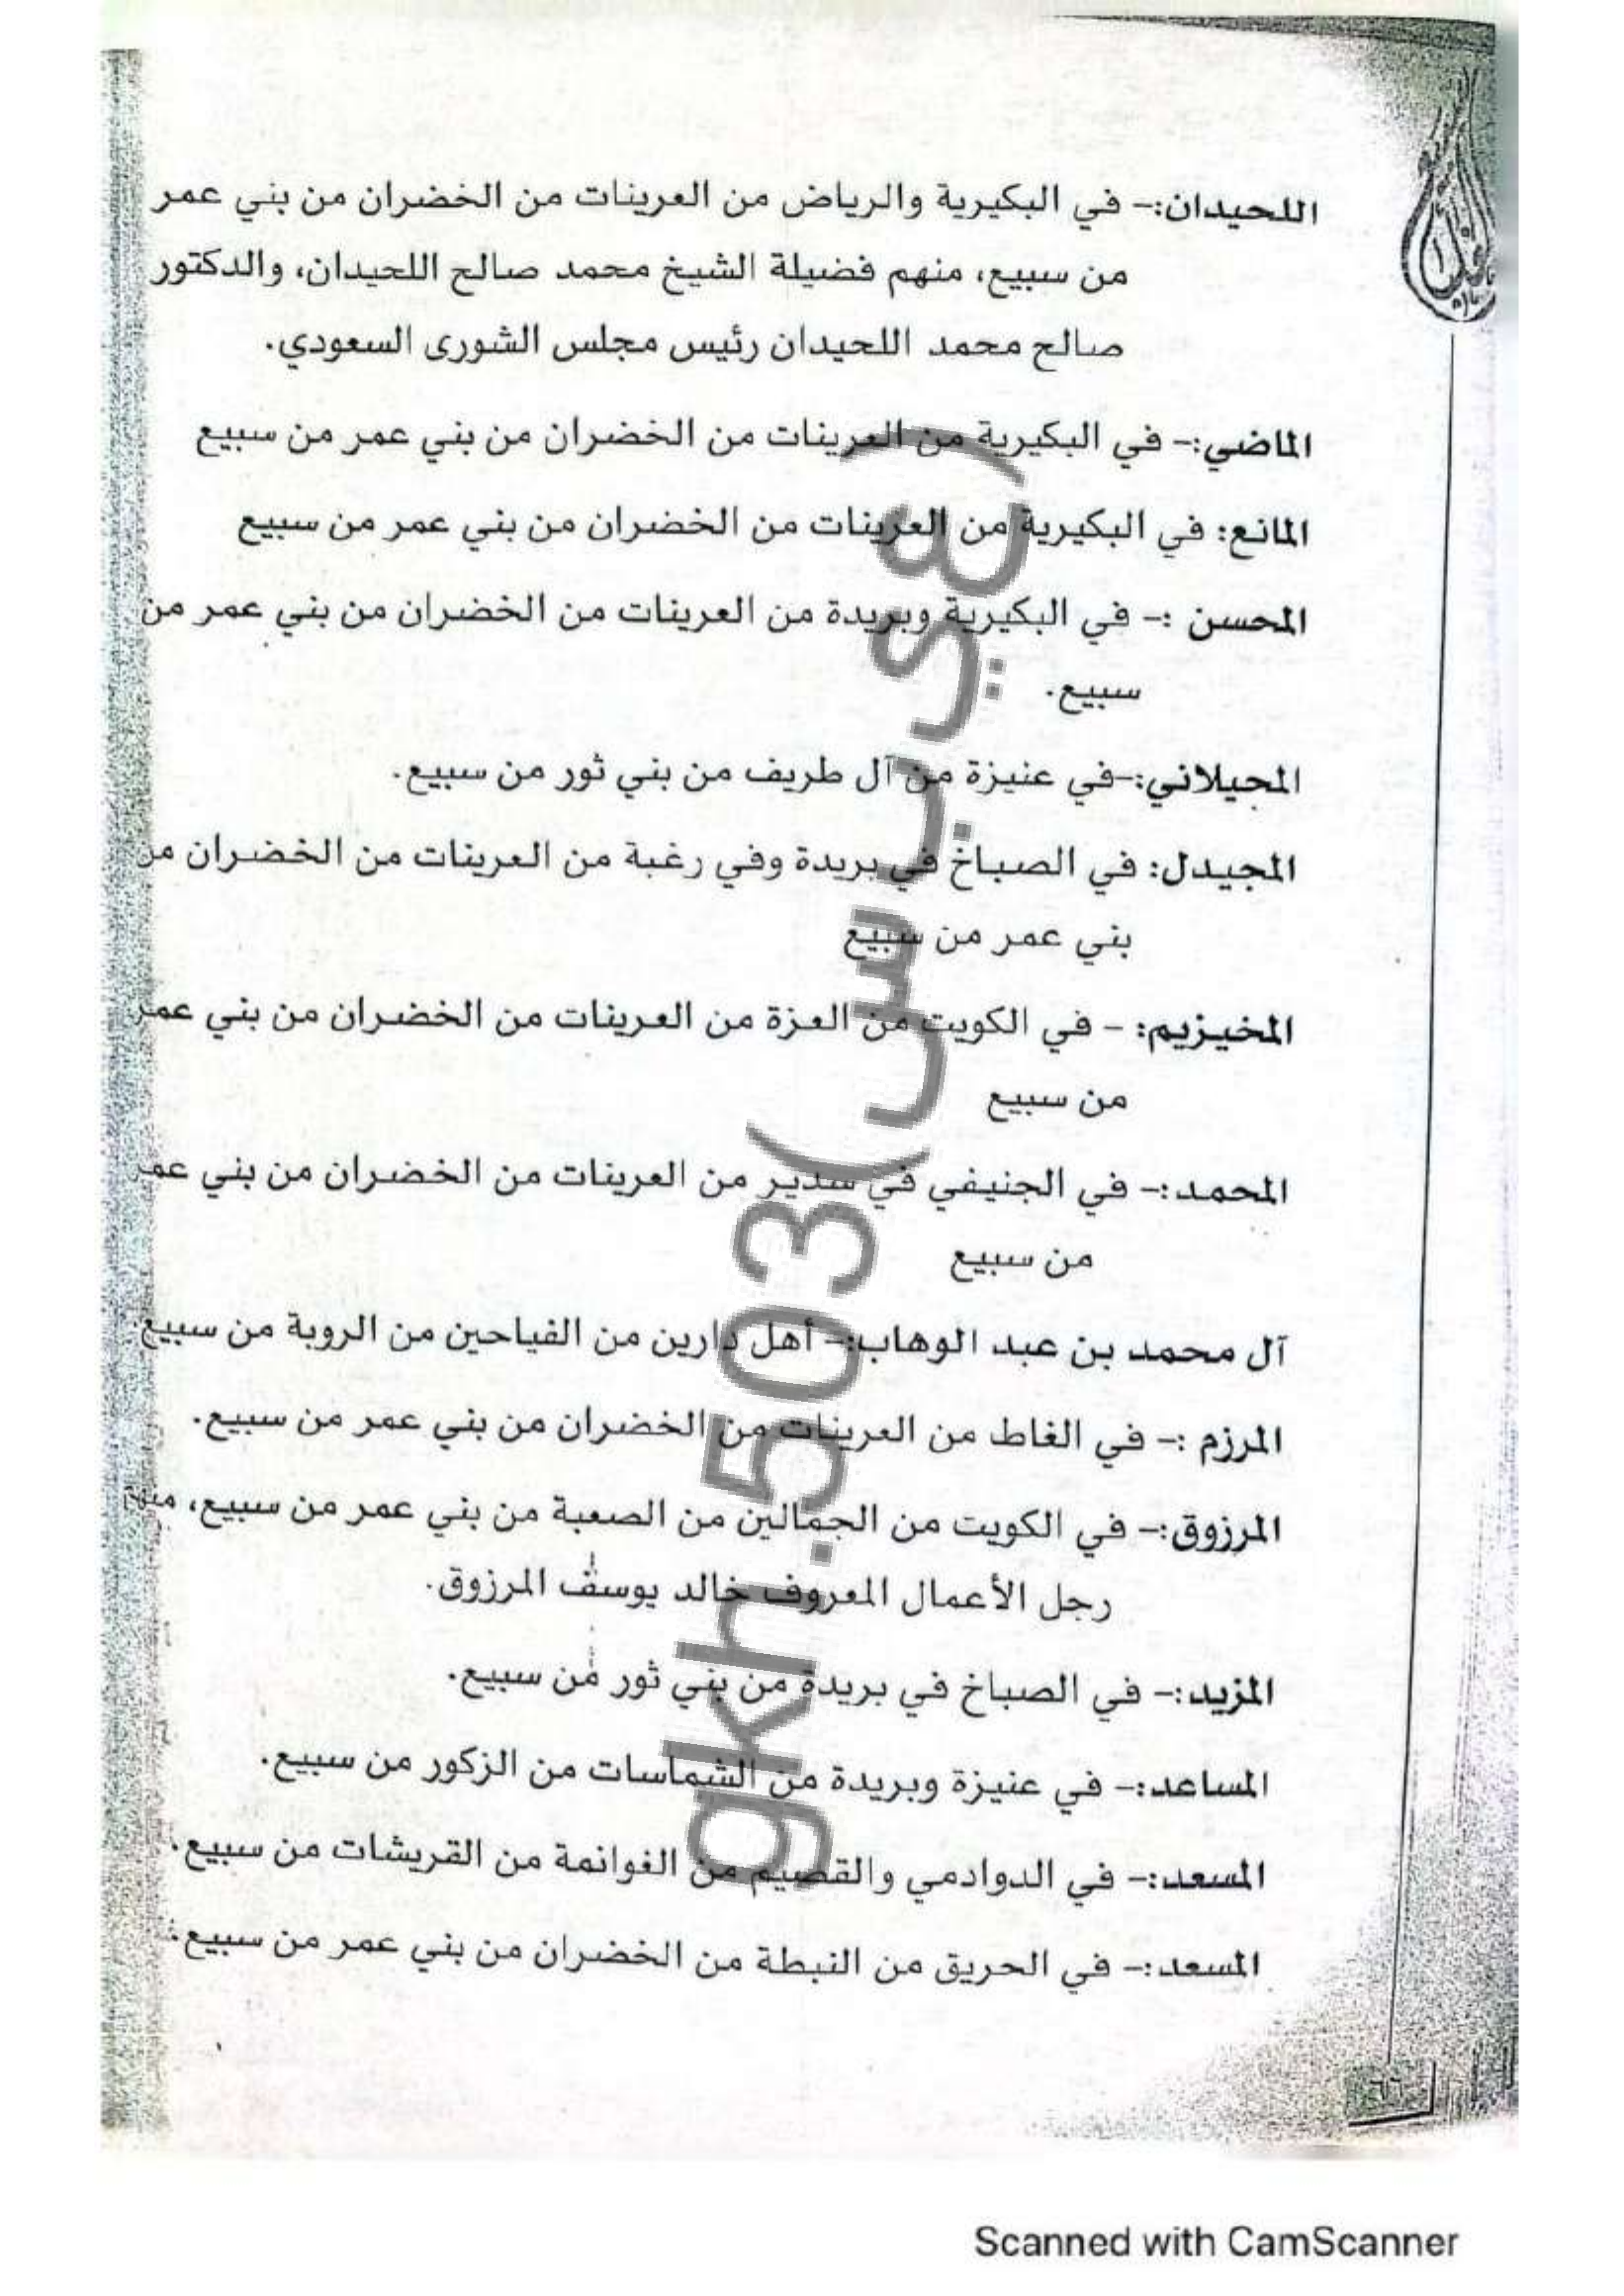 اللحيدان:- في البكيرية والرياض من العرينات من الخضران من بني عمر
من سبيع، منهم فضيلة الشيخ محمد صالح اللحيدان، والدكتور
صالح محمد اللحيدان رئيس مجلس الشورى السعودي.
الماضي:- في البكيرية من العرينات من الخضران من بني عمر من سبيع
المانع: في البكيرية من العرينات من الخضران من بني عمر من سبيع
المحسن :- في البكيرية وبريدة من العرينات من الخضران من بني عمر من
سبيع.
المحيلاني:-في عنيزة من آل طريف من بني ثور من سبيع.
المجيدل: في الصباخ في بريدة وفي رغبة من العرينات من الخضران من
بني عمر من سبيع
المخيزيم: - في الكويت من العزة من العرينات من الخضران من بني عمر
من سبيع
المحمد:- في الجنيفي في سدير من العرينات من الخضران من بني عمر
من سبيع
آل محمد بن عبد الوهاب:- أهل دارين من الفياحين من الروبة من سبيع.
المرزم :- في الغاط من العرينات من الخضران من بني عمر من سبيع.
المرزوق:- في الكويت من الجمالين من الصعبة من بني عمر من سبيع، منهم
رجل الأعمال المعروف خالد يوسف المرزوق.
المزيد:- في الصباخ في بريدة من بني ثور من سبيع.
المساعد:- في عنيزة وبريدة من الشماسات من الزكور من سبيع.
المسعد:- في الدوادمي والقصيم من الغوانمة من القريشات من سبيع.
المسعد:- في الحريق من النبطة من الخضران من بني عمر من سبيع.
٦٦
gkh.503
Scanned with CamScanner